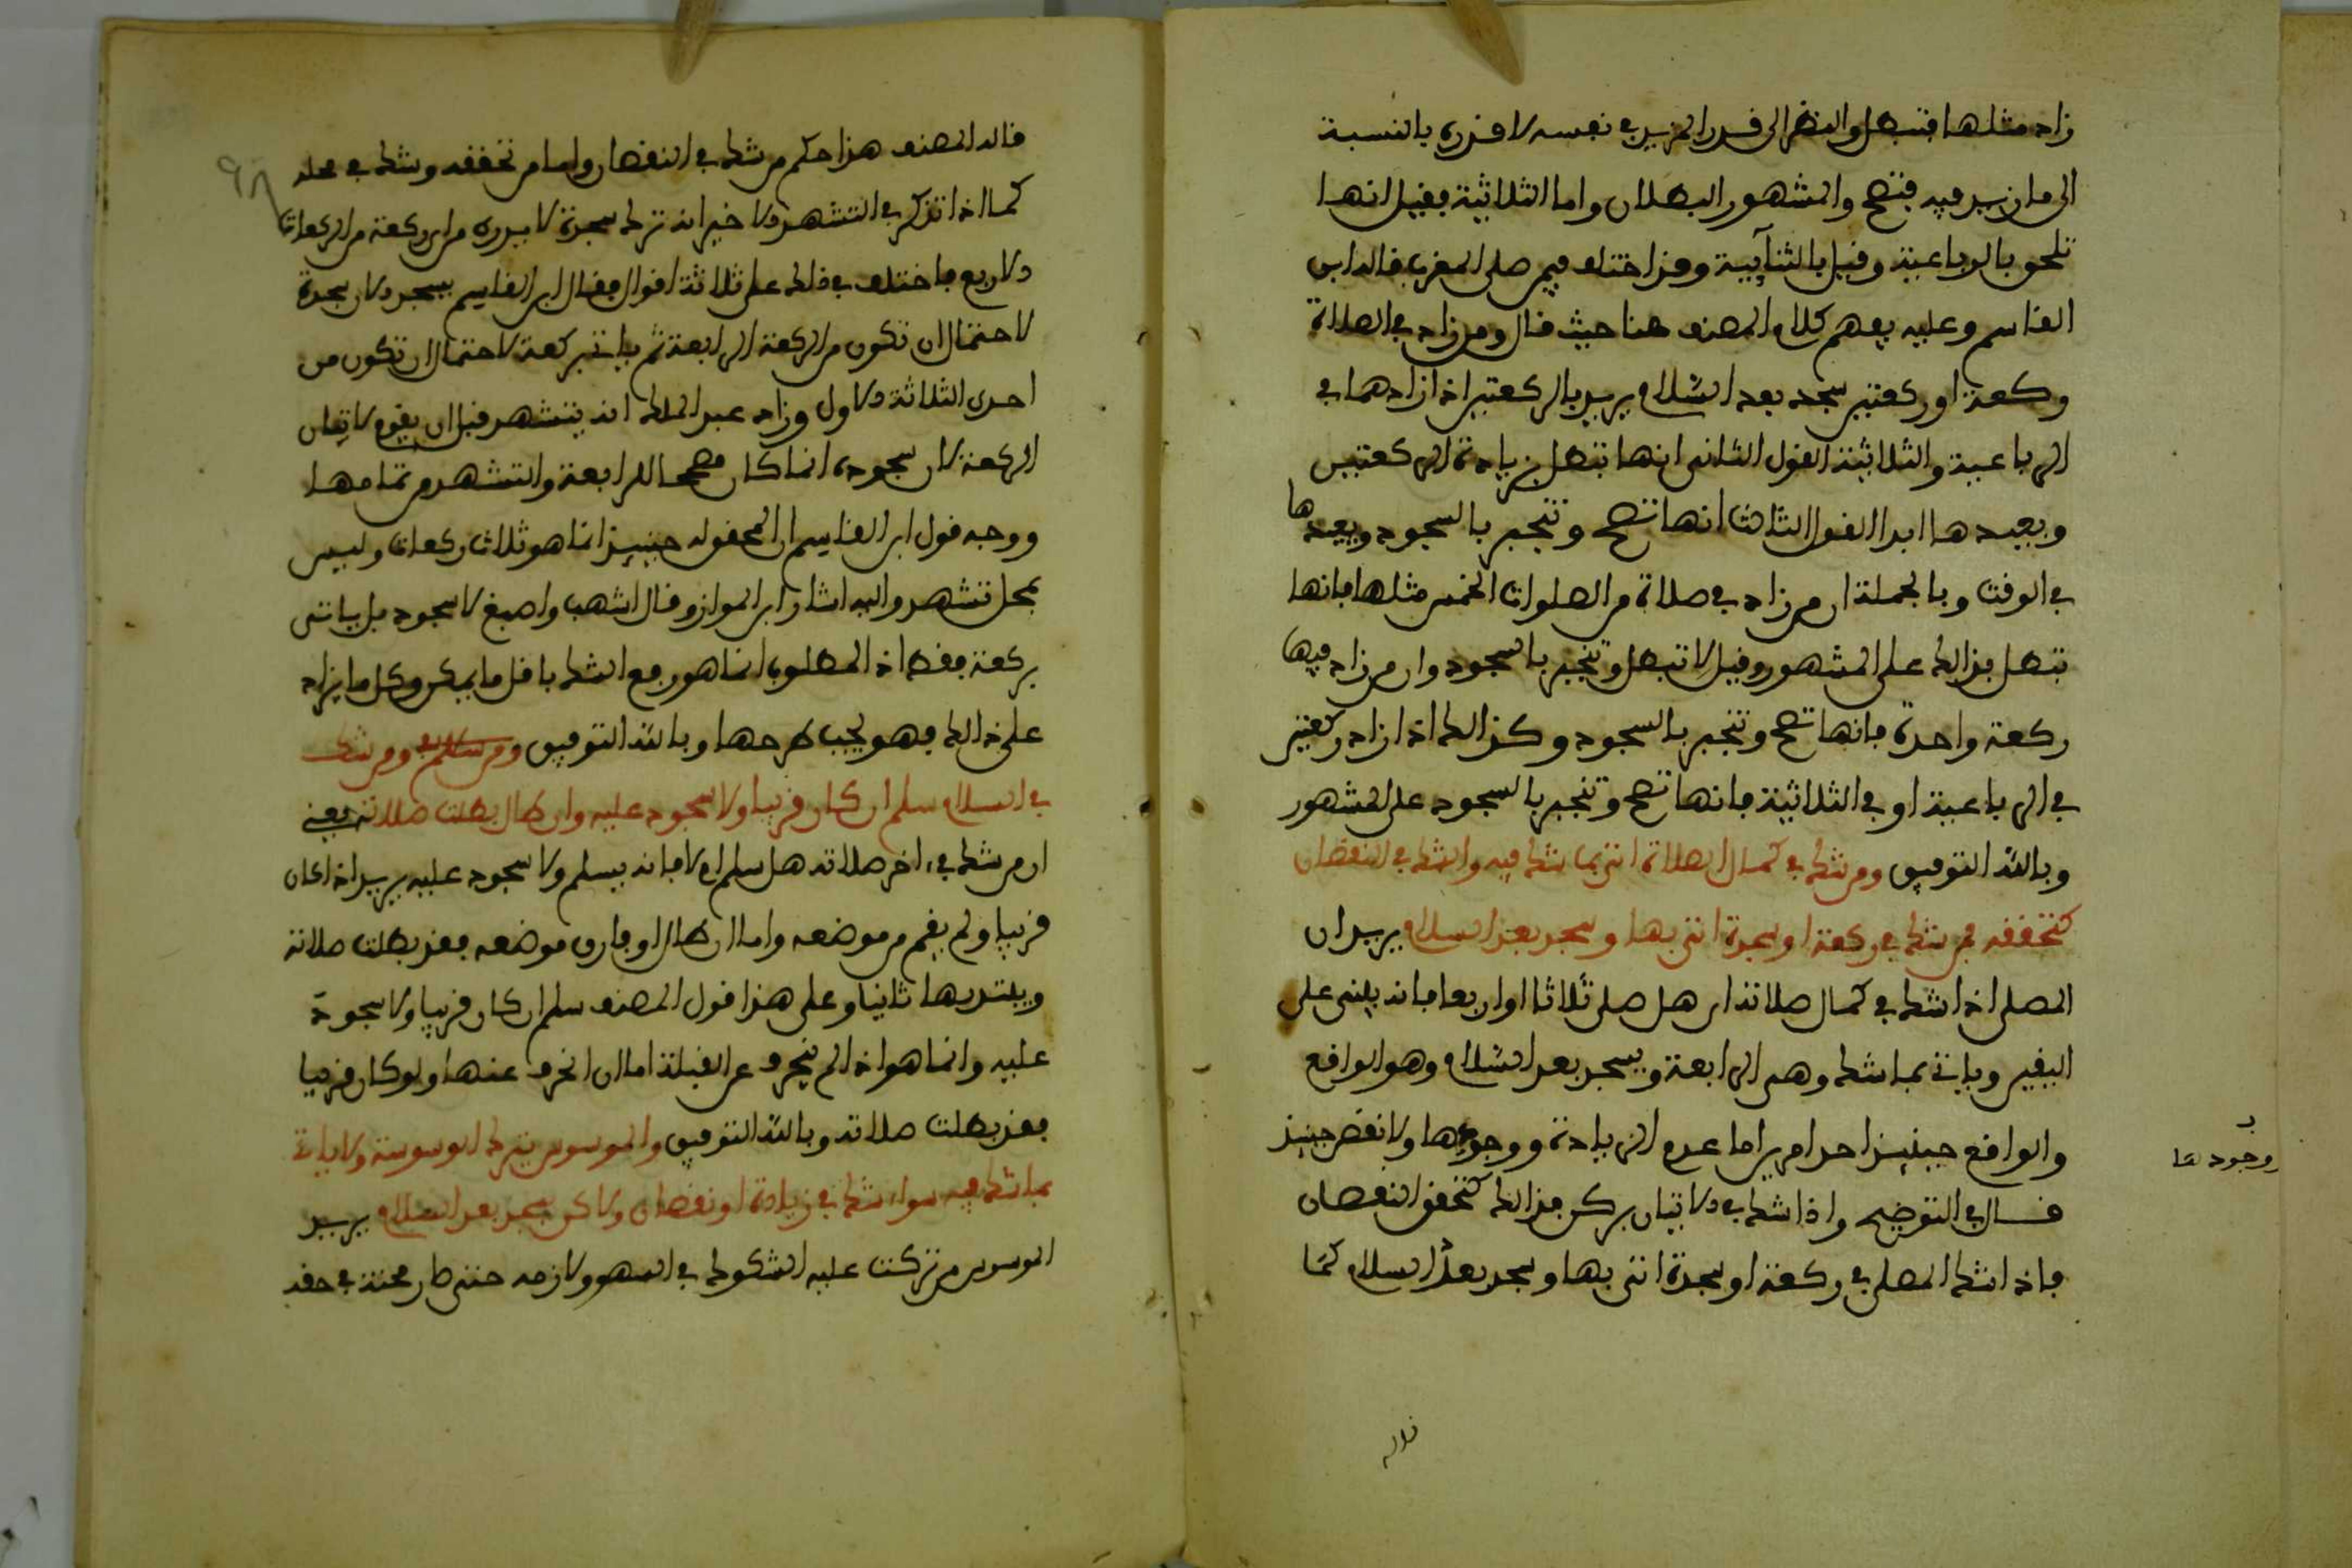 زاد مثلها فتبطل والنظر الى قدر المزيد في نفسه لا قدره بالنسبة
الى ما زيد فيه فتصح والمشهور البطلان واما الثلاثية فقيل انها
تلحق بالرباعية وقيل بالثنآيية وقد اختلف فيمن صلى المغرب قاله ابن
القاسم وعليه يفهم كلام المصنف هنا حيث قال ومن زاد في الصلاة
ركعة او ركعتين سجد بعد السلام يريد بالركعتين اذا زادهما في
الرباعية والثلاثية القول الثاني انها تبطل بزيادة الركعتين
ويعيدها ابدا القول الثالث انها تصح وتنجبر بالسجود ويعيدها
في الوقت وبالجملة ان من زاد في صلاة من الصلوات الخمس مثلها فانها
تبطل بذالك على المشهور وقيل لا تبطل وتنجبر بالسجود وان من زاد فيها
ركعة واحدة فانها تصح وتنجبر بالسجود وكذالك اذا زاد ركعتين
في الرباعية او في الثلاثية فانها تصح وتنجبر بالسجود على المشهور
وبالله التوفيق ومن شك في كمال الصلاة اتى بما شك فيه والشك في النقصان
كتحققه فمن شك في ركعة او سجدة اتى بها وسجد بعد السلام يريد ان
المصلى اذا شك في كمال صلاته اي هل صلى ثلاثا او اربعا فانه يبني على
اليقين وياتي بما شك وهي الرابعة ويسجد بعد السلام وهو الواقع
والواقع حينيذ احد امرين اما عدم الزيادة ووجودها ولا نقص حينيذ
وجودها
قال في التوضيح واذا شك في الاتيان بركن فذالك كتحقق النقصان
فاذا شك المصلى في ركعة او سجدة اتى بها وسجد بعد السلام كما
قاله
٩٨
قاله المصنف هذا حكم من شك في النقصان واما من تحققه وشك في محله
كما اذا تذكر في التشهد الاخير انه ترك سجدة لا يدرى من اي ركعة من الركعات
الاربع فاختلف في ذلك على ثلاثة اقوال فقال ابن القاسم يسجد الان سجدة
لاحتمال ان تكون من الركعة الرابعة ثم ياتي بركعة لاحتمال ان تكون من
احدى الثلاثة الاول وزاد عبد الملك انه يتشهد قبل ان يقوم لاتيان
الركعة لان سجوده انما كان مصححا للرابعة والتشهد من تمامها
ووجه قول ابن القاسم ان المحقق له حينيذ انما هو ثلاث ركعات وليس
بمحل تشهد واليه اشار ابن المواز وقال اشهب واصبغ لا سجود بل ياتى
بركعة فقط اذ المطلوب انما هو رفع الشك باقل ما يمكن وكل ما يزاد
على ذالك فهو يجب طرحها وبالله التوفيق ومن شك
في السلام سلم ان كان قريبا ولا سجود عليه وان طال بطلت صلاته يعني
ان من شك في ءاخر صلاته هل سلم ام لا فانه يسلم ولا سجود عليه يريد اذا كان
قريبا ولم يقم من موضعه واما ان طال او فارق موضعه فقد بطلت صلاته
ويبتديها ثانيا وعلى هذا قول المصنف سلم ان كان قريبا ولا سجود
عليه وانما هو اذا لم ينحرف عن القبلة اما ان انحرف عنها ولو كان قريبا
فقد بطلت صلاته وبالله التوفيق والموسوس يترك الوسوسة ولا ياتي
بما شك فيه سواء شك في زيادة او نقصان ولاكن يسجد بعد السلام يريد
الموسوس من تركت عليه الشكوك في السهو ولازمه حتى صار محنة في حقه